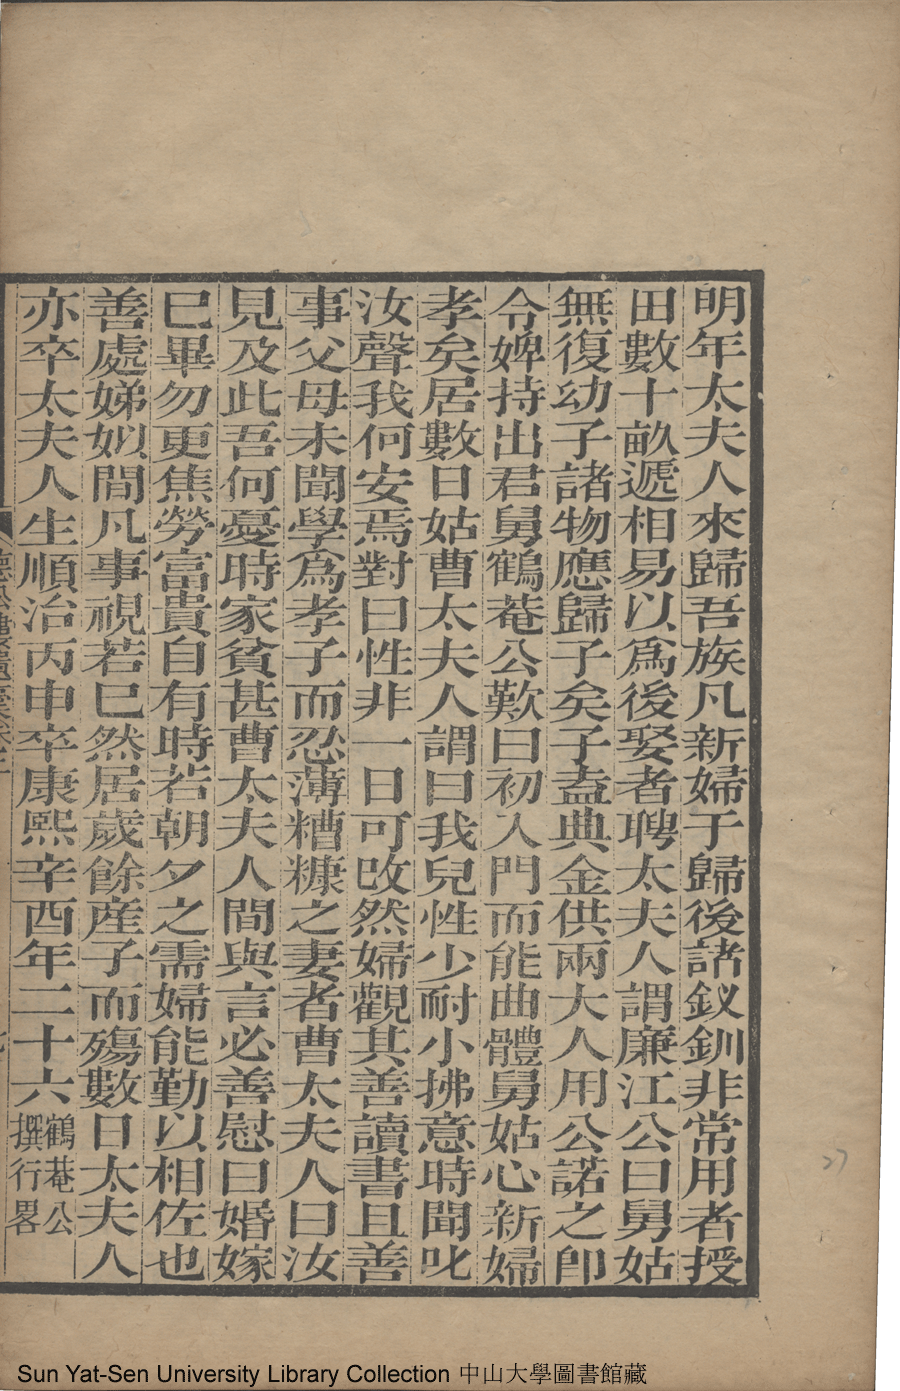 明年太夫人來歸吾族凡新婦于歸後諸釵釧非常用者授
田數十畝遞相易以爲後娶者聘太夫人謂廉江公曰舅姑
無復幼子諸物應歸子矣子盍典金供兩大人用公諾之卽
令婢持出君舅鶴菴公歎曰初入門而能曲體舅姑心新婦
孝矣居數日姑曹太夫人謂曰我兒性少耐小拂意時聞叱
汝聲我何安焉對曰性非一日可改然婦觀其善讀書且善
事父母未聞學爲孝子而忍薄糟糠之妻者曹太夫人曰汝
見及此吾何憂時家貧甚曹太夫人間與言必善慰曰婚嫁
已畢勿更焦勞富貴自有時若朝夕之需婦能勤以相佐也
善處娣姒間凡事視若已然居歲餘産子而殤數日太夫人
亦卒太夫人生順治丙申卒康熙辛酉年二十六鶴菴公
撰行畧
Sun Yat-Sen University Library Collection 中山大學圖書館藏
27